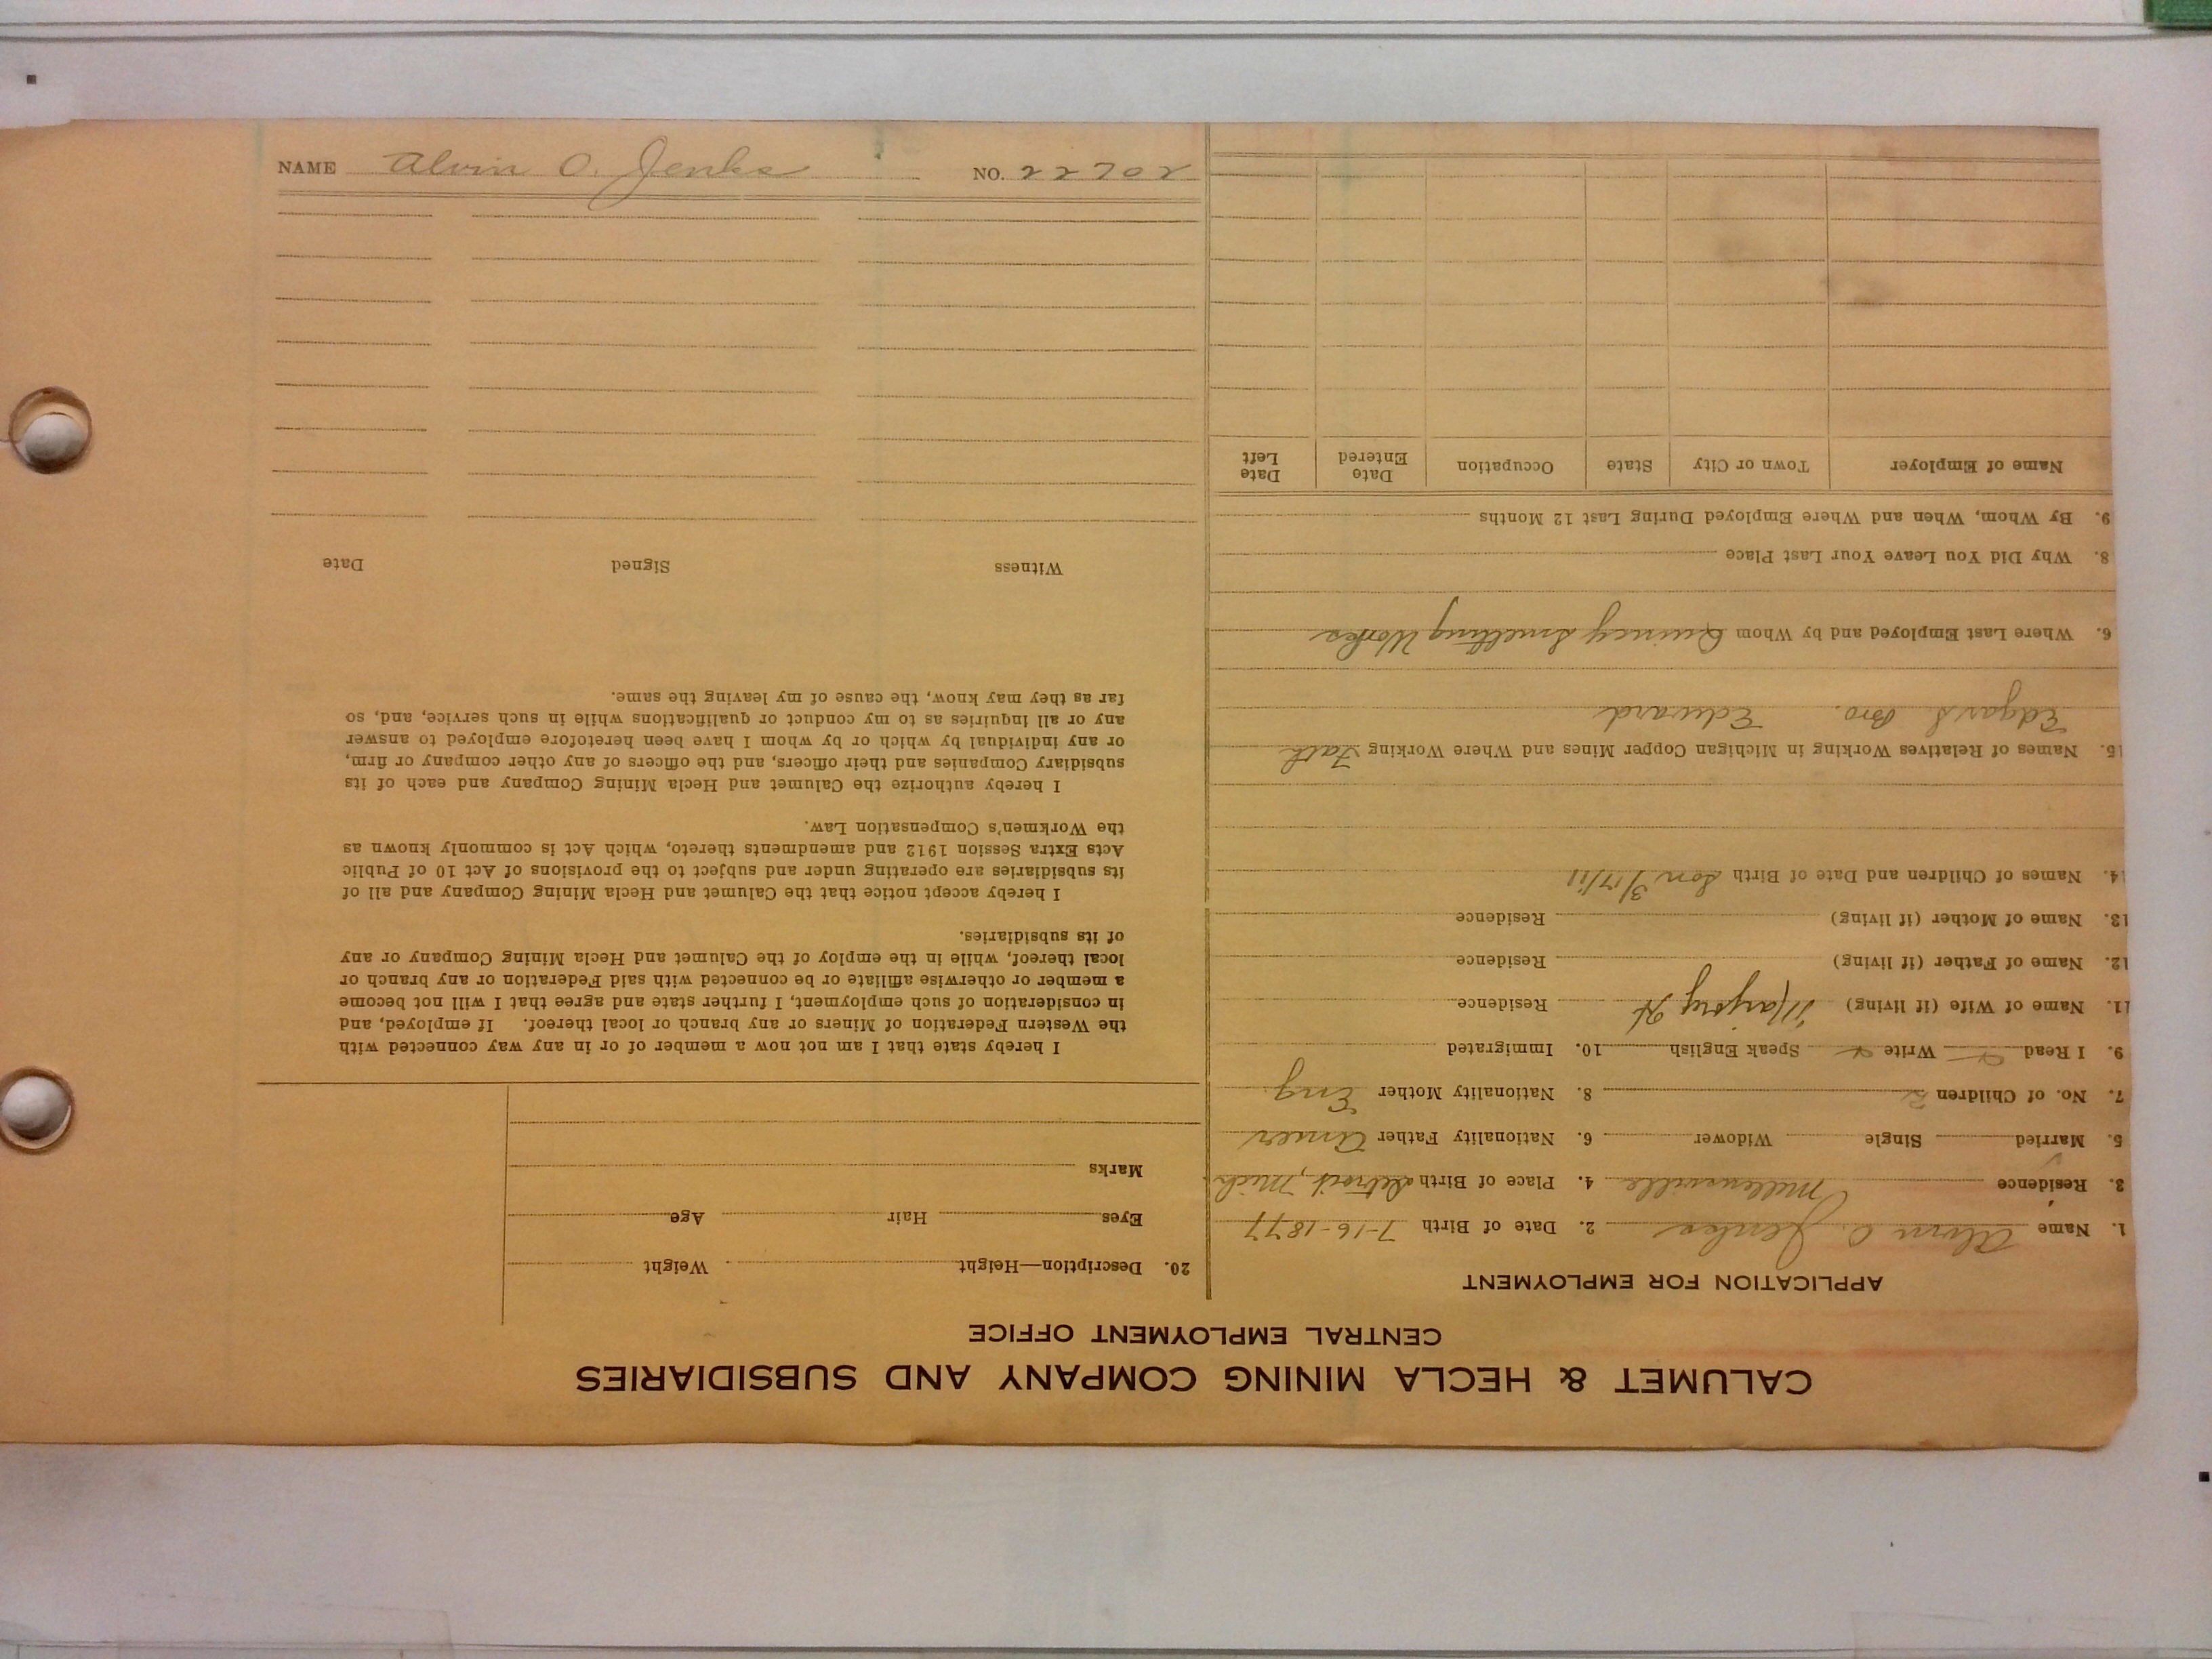 CALUMET & HECLA MINING COMPANY AND SUBSIDIARIES
CENTRAL EMPLOYMENT OFFICE
APPLICATION FOR EMPLOYMENT
1. Name Alvin O. Jenks 2. Date of Birth 7-16-1877
3. Residence Millersville 4. Place of Birth Detroit, Mich.
5. Married Single Widower 6. Nationality Father Amer
7. No. of Children 2 8. Nationality Mother Eng
9. I Read Write Speak English 10. Immigrated
11. Name of Wife (if living) Marjory H Residence
12. Name of Father (if living) Residence
13. Name of Mother (if living) Residence
14. Names of Children and Date of Birth Son 3/17/11
15. Names of Relatives Working in Michigan Copper Mines and Where Working Fath
Edgar S Bro. Edward
6. Where Last Employed and by Whom Quincy Smelting Works
8. Why Did You Leave Your Last Place
9. By Whom, When and Where Employed During Last 12 Months
Name of Employer Town or City State Occupation Date Entered Date Left
20. Description—Height Weight
Eyes Hair Age
Marks
I hereby state that I am not now a member of or in any way connected with
the Western Federation of Miners or any branch or local thereof. If employed, and
in consideration of such employment, I further state and agree that I will not become
a member or otherwise affiliate or be connected with said Federation or any branch or
local thereof, while in the employ of the Calumet and Hecla Mining Company or any
of its subsidiaries.
I hereby accept notice that the Calumet and Hecla Mining Company and all of
its subsidiaries are operating under and subject to the provisions of Act 10 of Public
Acts Extra Session 1912 and amendments thereto, which Act is commonly known as
the Workmen's Compensation Law.
I hereby authorize the Calumet and Hecla Mining Company and each of its
subsidiary Companies and their officers, and the officers of any other company or firm,
or any individual by which or by whom I have been heretofore employed to answer
any or all inquiries as to my conduct or qualifications while in such service, and, so
far as they may know, the cause of my leaving the same.
Witness Signed Date
NAME Alvin O. Jenks NO. 22702